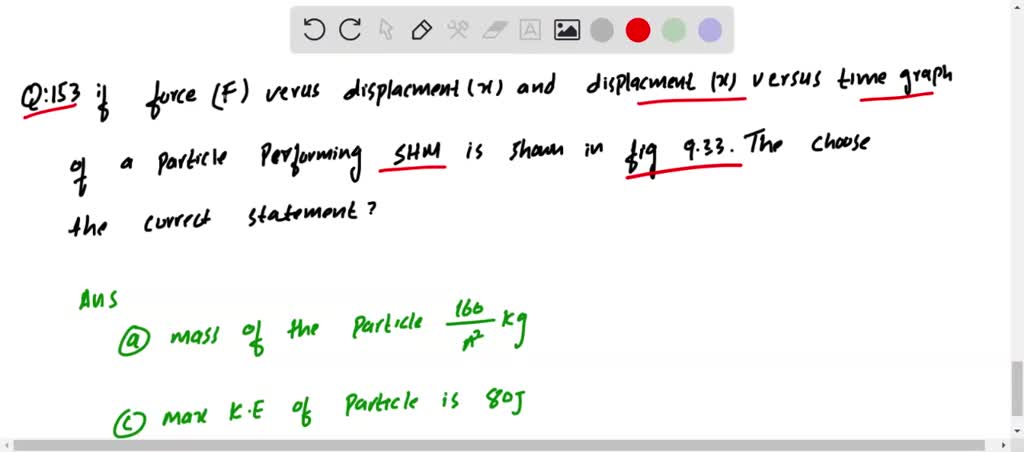 Q:153 if force (F) verus displacment (x) and displacment (x) versus time graph
of a particle Performing SHM is shown in fig 9.33. The choose
the currect statement?
Ans
(a) mass of the particle 160/π² kg
(c) max K.E of Particle is 80J